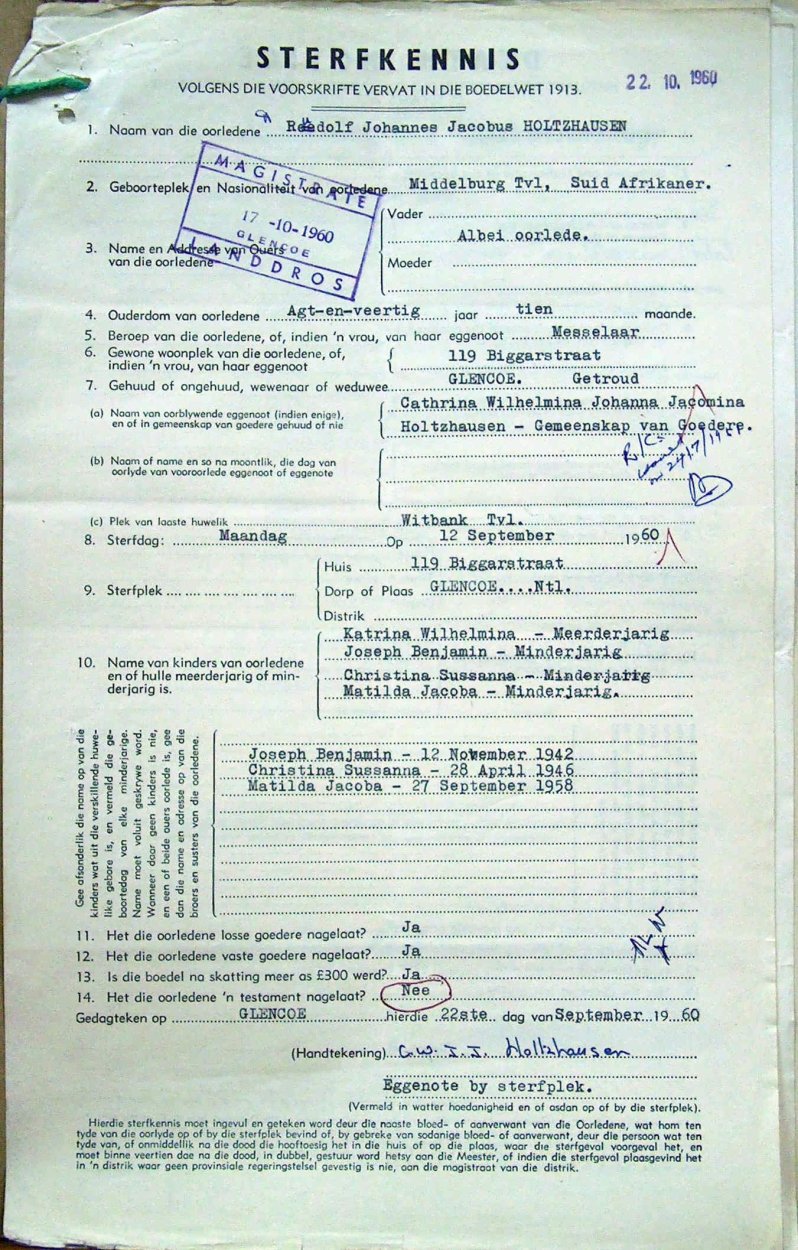 STERFKENNIS
VOLGENS DIE VOORSKRIFTE VERVAT IN DIE BOEDELWET 1913.
22. 10. 1960
1. Naam van die oorledene Rudolf Johannes Jacobus HOLTZHAUSEN
MAGISTRATE
17 -10-1960
GLENCOE
LANDDROS
2. Geboorteplek en Nasionaliteit van oorledene Middelburg Tvl, Suid Afrikaner.
3. Name en Addresse van Ouers van die oorledene
Vader
Albei oorlede.
Moeder
4. Ouderdom van oorledene Agt-en-veertig jaar tien maande.
5. Beroep van die oorledene, of, indien 'n vrou, van haar eggenoot Messelaar
6. Gewone woonplek van die oorledene, of, 119 Biggarstraat
indien 'n vrou, van haar eggenoot
7. Gehuud of ongehuud, wewenaar of weduwee GLENCOE. Getroud
(a) Naam van oorblywende eggenoot (indien enige), Cathrina Wilhelmina Johanna Jacomina
en of in gemeenskap van goedere gehuud of nie Holtzhausen - Gemeenskap van Goedere.
(b) Naam of name en so na moontlik, die dag van
oorlyde van vooroorlede eggenoot of eggenote
(c) Plek van laaste huwelik Witbank Tvl.
8. Sterfdag: Maandag Op 12 September 1960
9. Sterfplek
Huis 119 Biggarstraat
Dorp of Plaas GLENCOE....Ntl.
Distrik
10. Name van kinders van oorledene
en of hulle meerderjarig of min-
derjarig is.
Katrina Wilhelmina - Meerderjarig
Joseph Benjamin - Minderjarig
Christina Sussanna - Minderjarig
Matilda Jacoba - Minderjarig.
Gee afsonderlik die name op van die
kinders wat uit die verskillende huwe-
like gebore is, en vermeld die ge-
boortedag van elke minderjarige.
Name moet voluit geskrywe word.
Wanneer daar geen kinders is nie,
en een of beide ouers oorlede is, gee
dan die name en adresse op van die
broers en susters van die oorledene.
Joseph Benjamin - 12 November 1942
Christina Sussanna - 28 April 1946
Matilda Jacoba - 27 September 1958
11. Het die oorledene losse goedere nagelaat? Ja
12. Het die oorledene vaste goedere nagelaat? Ja
13. Is die boedel na skatting meer as £300 werd? Ja
14. Het die oorledene 'n testament nagelaat? Nee
Gedagteken op GLENCOE hierdie 22ste dag van September 1960
(Handtekening) C.W.J.J. Holtzhausen
Eggenote by sterfplek.
(Vermeld in watter hoedanigheid en of asdan op of by die sterfplek).
Hierdie sterfkennis moet ingevul en geteken word deur die naaste bloed- of aanverwant van die Oorledene, wat hom ten
tyde van die oorlyde op of by die sterfplek bevind of, by gebreke van sodanige bloed- of aanverwant, deur die persoon wat ten
tyde van, of onmiddellik na die dood die hooftoesig het in die huis of op die plaas, waar die sterfgeval voorgeval het, en
moet binne veertien dae na die dood, in dubbel, gestuur word hetsy aan die Meester, of indien die sterfgeval plaasgevind het
in 'n distrik waar geen provinsiale regeringstelsel gevestig is nie, aan die magistraat van die distrik.